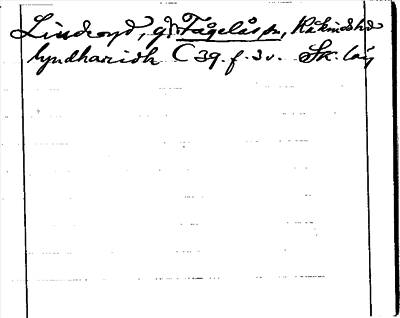 Lindroyd, gd Fågelås sn, Kåkinds hd
lyndharidh C 39. f. 3v. Sk. lag